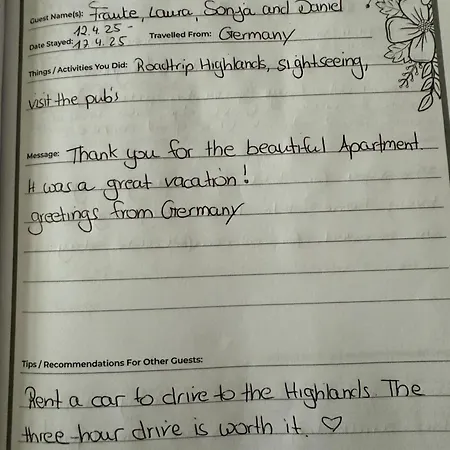 Guest Name(s): Fraute, Laura, Sonja and Daniel
12.4.25 -
Date Stayed: 17.4.25 Travelled From: Germany
Things / Activities You Did: Roadtrip Highlands, sightseeing,
visit the pub's
Message: Thank you for the beautiful Apartment.
It was a great vacation!
greetings from Germany
Tips / Recommendations For Other Guests:
Rent a car to drive to the Highlands. The
three-hour drive is worth it. ♡